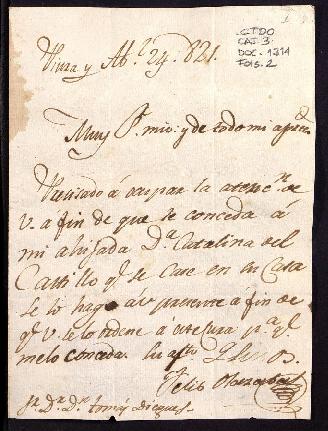 CTDO
CAJ. 3
DOC. 1314
FOLS. 2
y Ab.l 24. 821.
Muy S. mio y de todo mi aprecio
a ocupar la atenc.n de
V. a fin de que se conceda á
mi ahijada D.a Catalina del
Castillo q.e se Case en su Casa
se lo hago a V. presente á fin de
q.e V. se lo ordene á este Cura p.a q.e
me lo conceda. Su af.to
Felis
S.r D.r D.n Tomás Dieguez